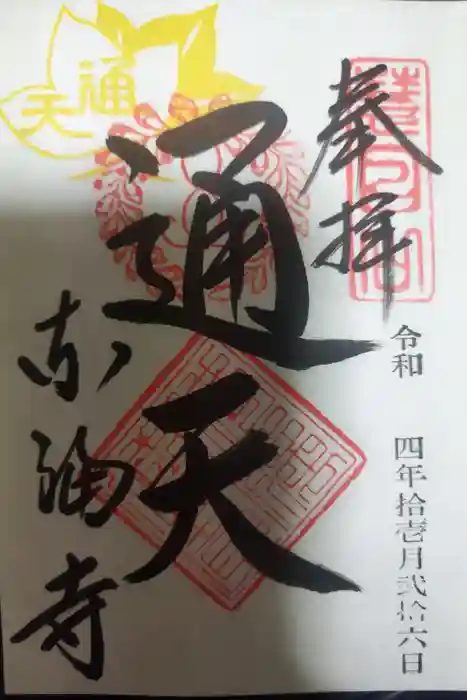 奉拝
令和 四年拾壱月弐拾六日
通天
東福寺
通天